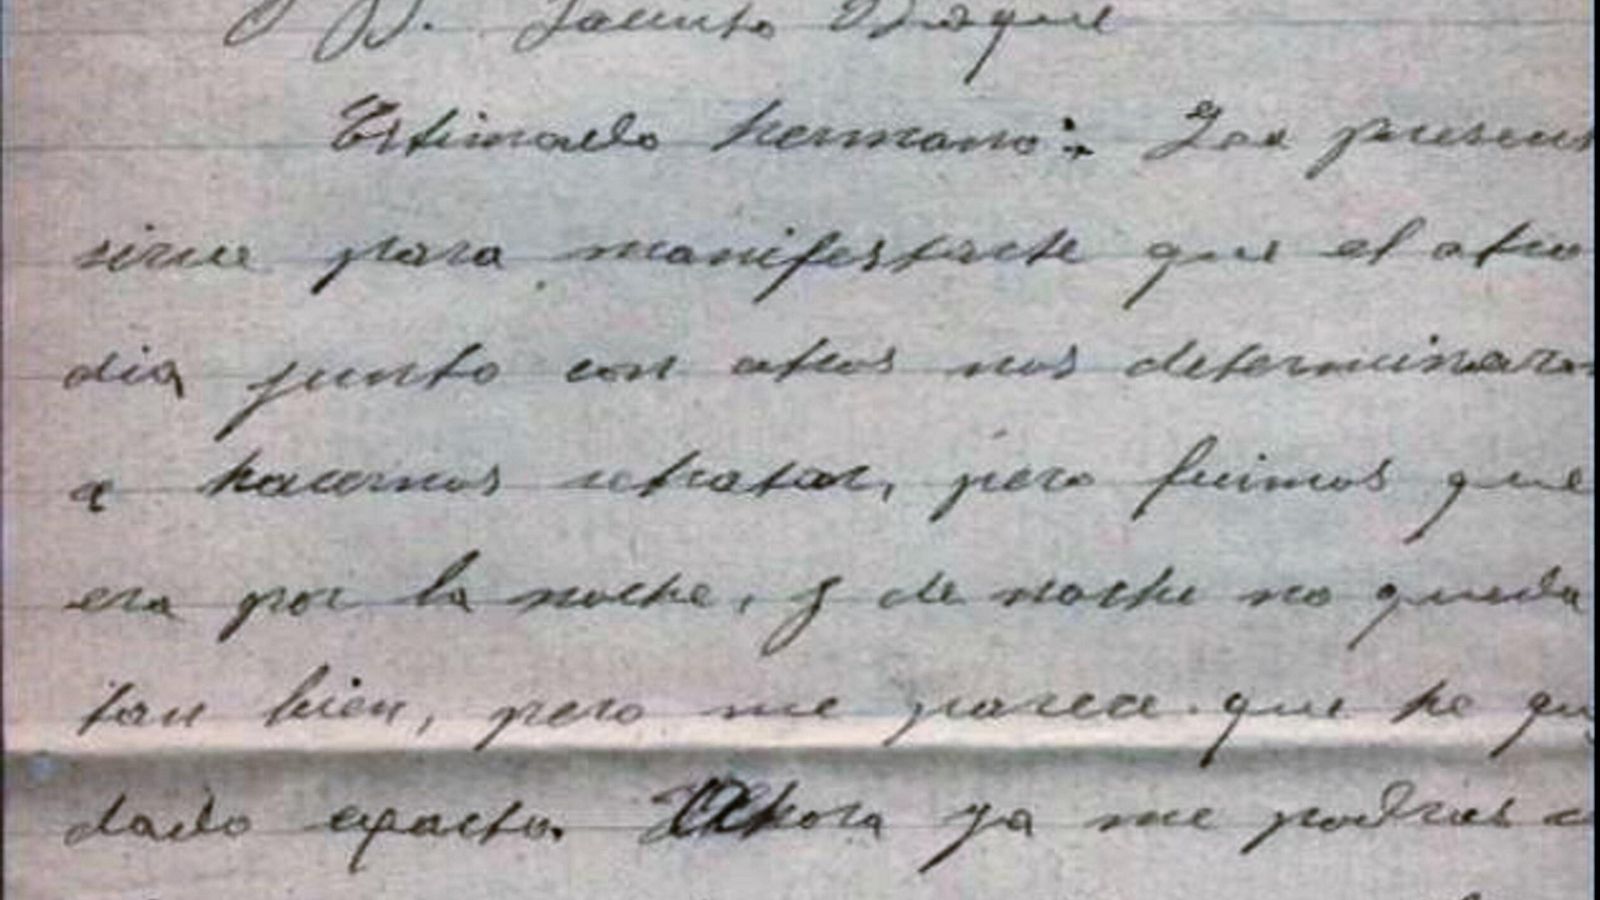 D. Jacinto
Estimado hermano: La presen
sirve para manifestarte que el otro
dia junto con otros nos determinaron
a hacernos retratar, pero fuimos que
era por la noche, y de noche no queda
tan bien, pero me parece que he qu
dado exacto. Ahora ya me podrias